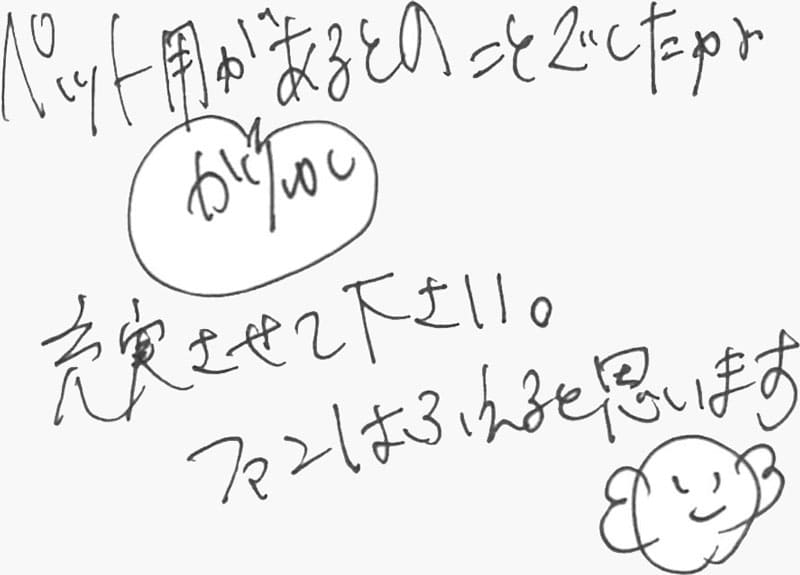 ペット用があるとのことでしたが
充実させて下さい。
ファンはふえると思います